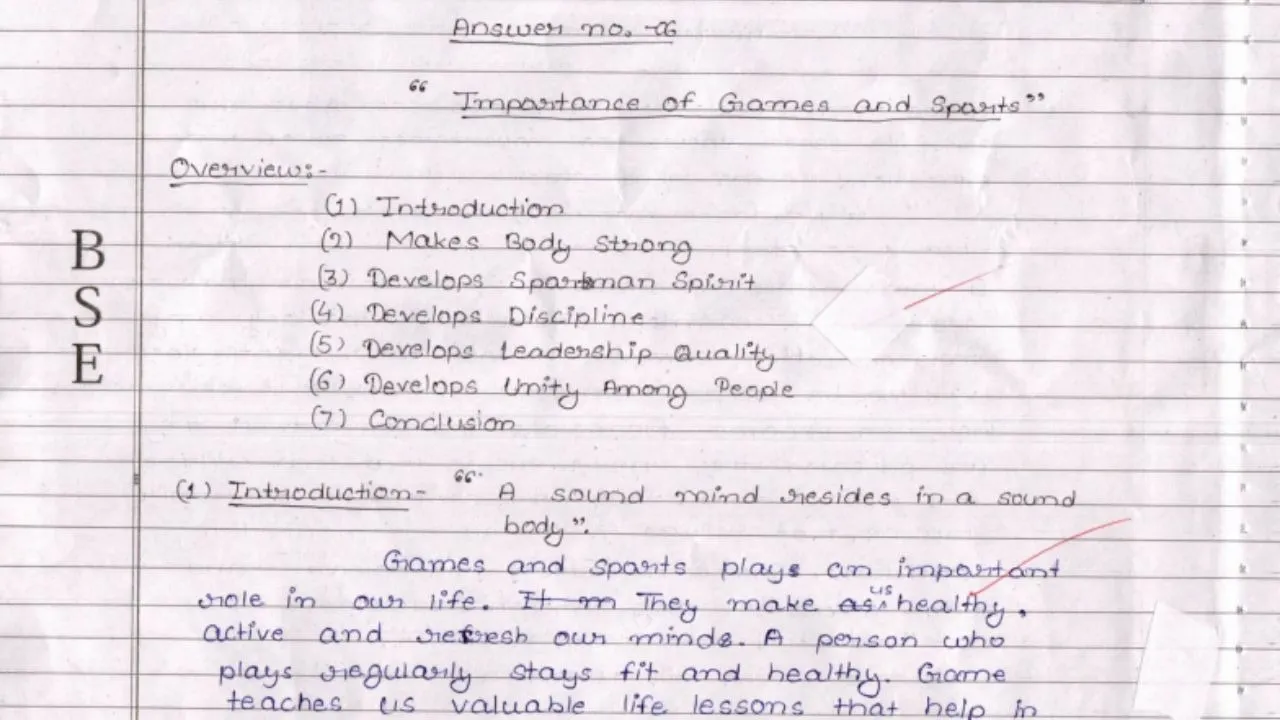 Answer no. -06
“ Importance of Games and Sports”
Overview:-
(1) Introduction
(2) Makes Body Strong
(3) Develops Sportsman Spirit
(4) Develops Discipline
(5) Develops Leadership Quality
(6) Develops Unity Among People
(7) Conclusion
B
S
E
(1) Introduction- “ A sound mind resides in a sound
body”.
Games and sports plays an important
role in our life. It m They make as us healthy,
active and refresh our minds. A person who
plays regularly stays fit and healthy. Game
teaches us valuable life lessons that help in